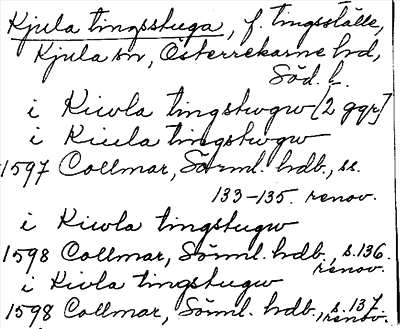 Kjula tingsstuga, f. tingsställe,
Kjula sn, Österrekarne hd,
Söd. l.
i Kiwla tingstwgw [2 ggr]
i Kiula tingstwgw
1597 Collmar, Sörml. hdb., ss.
133-135. renov.
i Kiwla tingstugw
1598 Collmar, Sörml. hdb., s. 136.
renov.
i Kivla tingstugw
1598 Collmar, Sörml. hdb., s. 137.
renov.